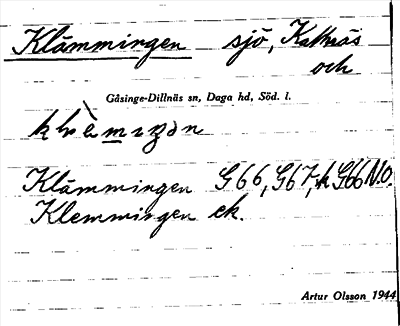 Klämmingen sjö, Kattnäs
och
Gåsinge-Dillnäs sn, Daga hd, Söd. l.
Klämmingen G66, G67, h G66 N.O.
Klemmingen ek.
Artur Olsson 1944